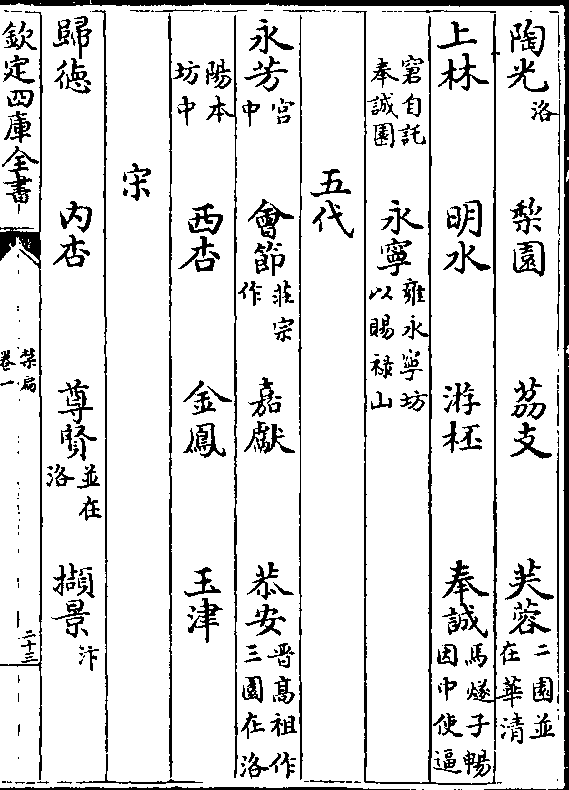 陶光洛　梨園　荔支　芙蓉二園並在華清
上林　明水　游柸　奉誠馬燧子暢因中使逼
窘自託奉誠園　永寧雍永寧坊以賜祿山
五代
永芳宫中　會節莊宗作　嘉獻　恭安晋髙祖作三園在洛
陽本坊中　西杏　金鳳　玉津
宋
歸徳　内杏　尊賢並在洛　擷景汴
欽定四庫全書　禁扁卷一　二十三